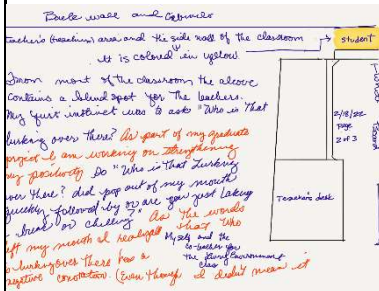 Back wall and Cabinets
teacher's (teaching) area and the side wall of the classroom
student
It is colored in yellow
From most of the classroom the alcove
contains a blind spot for the teachers.
My first instinct was to ask "Who is that
lurking over there? As part of my graduate
project I am working on strengthening
my positivity So "Who is That Lurking
over there? did pop out of my mouth
quickly followed by or are you just taking
a break or chilling?" As the words
left my mouth I realized that Who
is lurking over there has a
negative connotation. (Even though I didn't mean it
Myself and the
co-teacher for
the
Environment
class
2/8/22
Page
2 of 3
Teacher's desk
Board